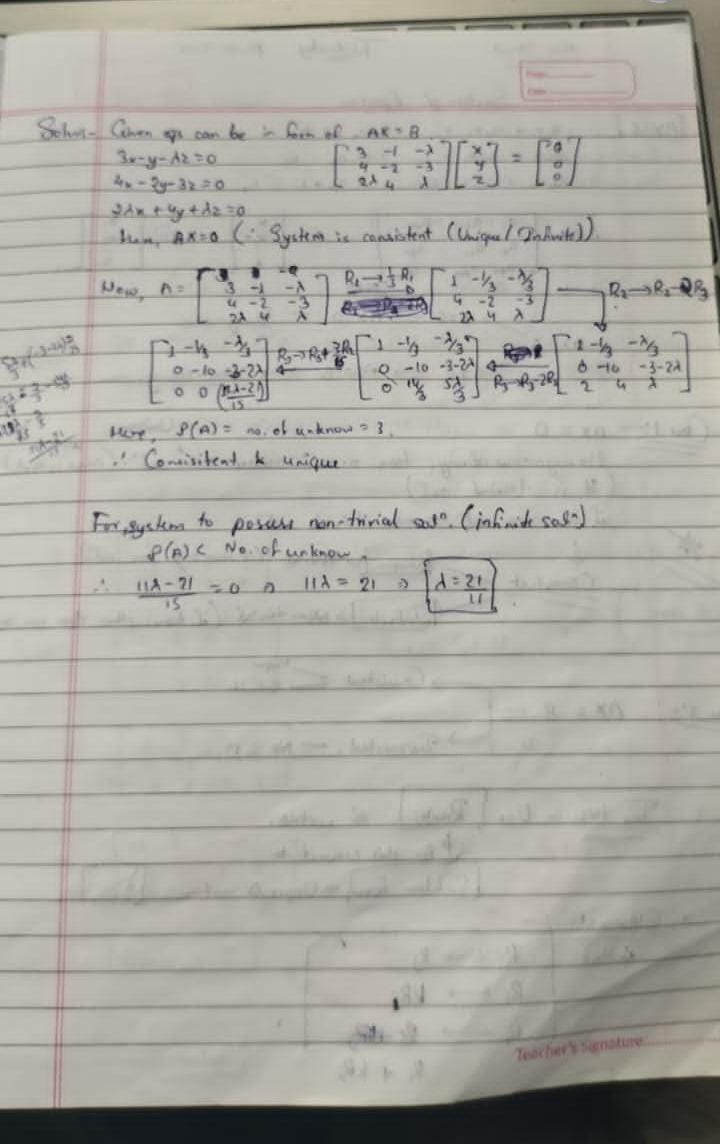 Solun- Given eqs can be in form of AX = B
3x-y-λz=0 [3 -1 -λ / 4 -2 -3 / 2λ 4 λ] [x / y / z] = [0 / 0 / 0]
4x-2y-3z=0
2λx+4y+λz=0
Here, AX=0 (∴ System is consistent (Unique/Infinite))
Now, A = [3 -1 -λ / 4 -2 -3 / 2λ 4 λ] R₁→1/3 R₁ [1 -1/3 -λ/3 / 4 -2 -3 / 2λ 4 λ] R₂→R₂-2R₃
[1 -1/3 -λ/3 / 0 -10 -3-2λ / 0 0 (11λ-21)/15] R₃→R₃+ [1 -1/3 -λ/3 / 0 -10 -3-2λ / 0 14/3 5λ/3] R₃→R₃-2R₁ [1 -1/3 -λ/3 / 0 -10 -3-2λ / 2 4 λ]
Here, ρ(A) = no. of unknow = 3,
∴ Consisitent & unique
For, system to posses non-trivial solⁿ. (infinite solⁿ)
ρ(A) < No. of unknow.
∴ 11λ-21/15 = 0 ⇒ 11λ = 21 ⇒ λ = 21/11
Teacher's Signature